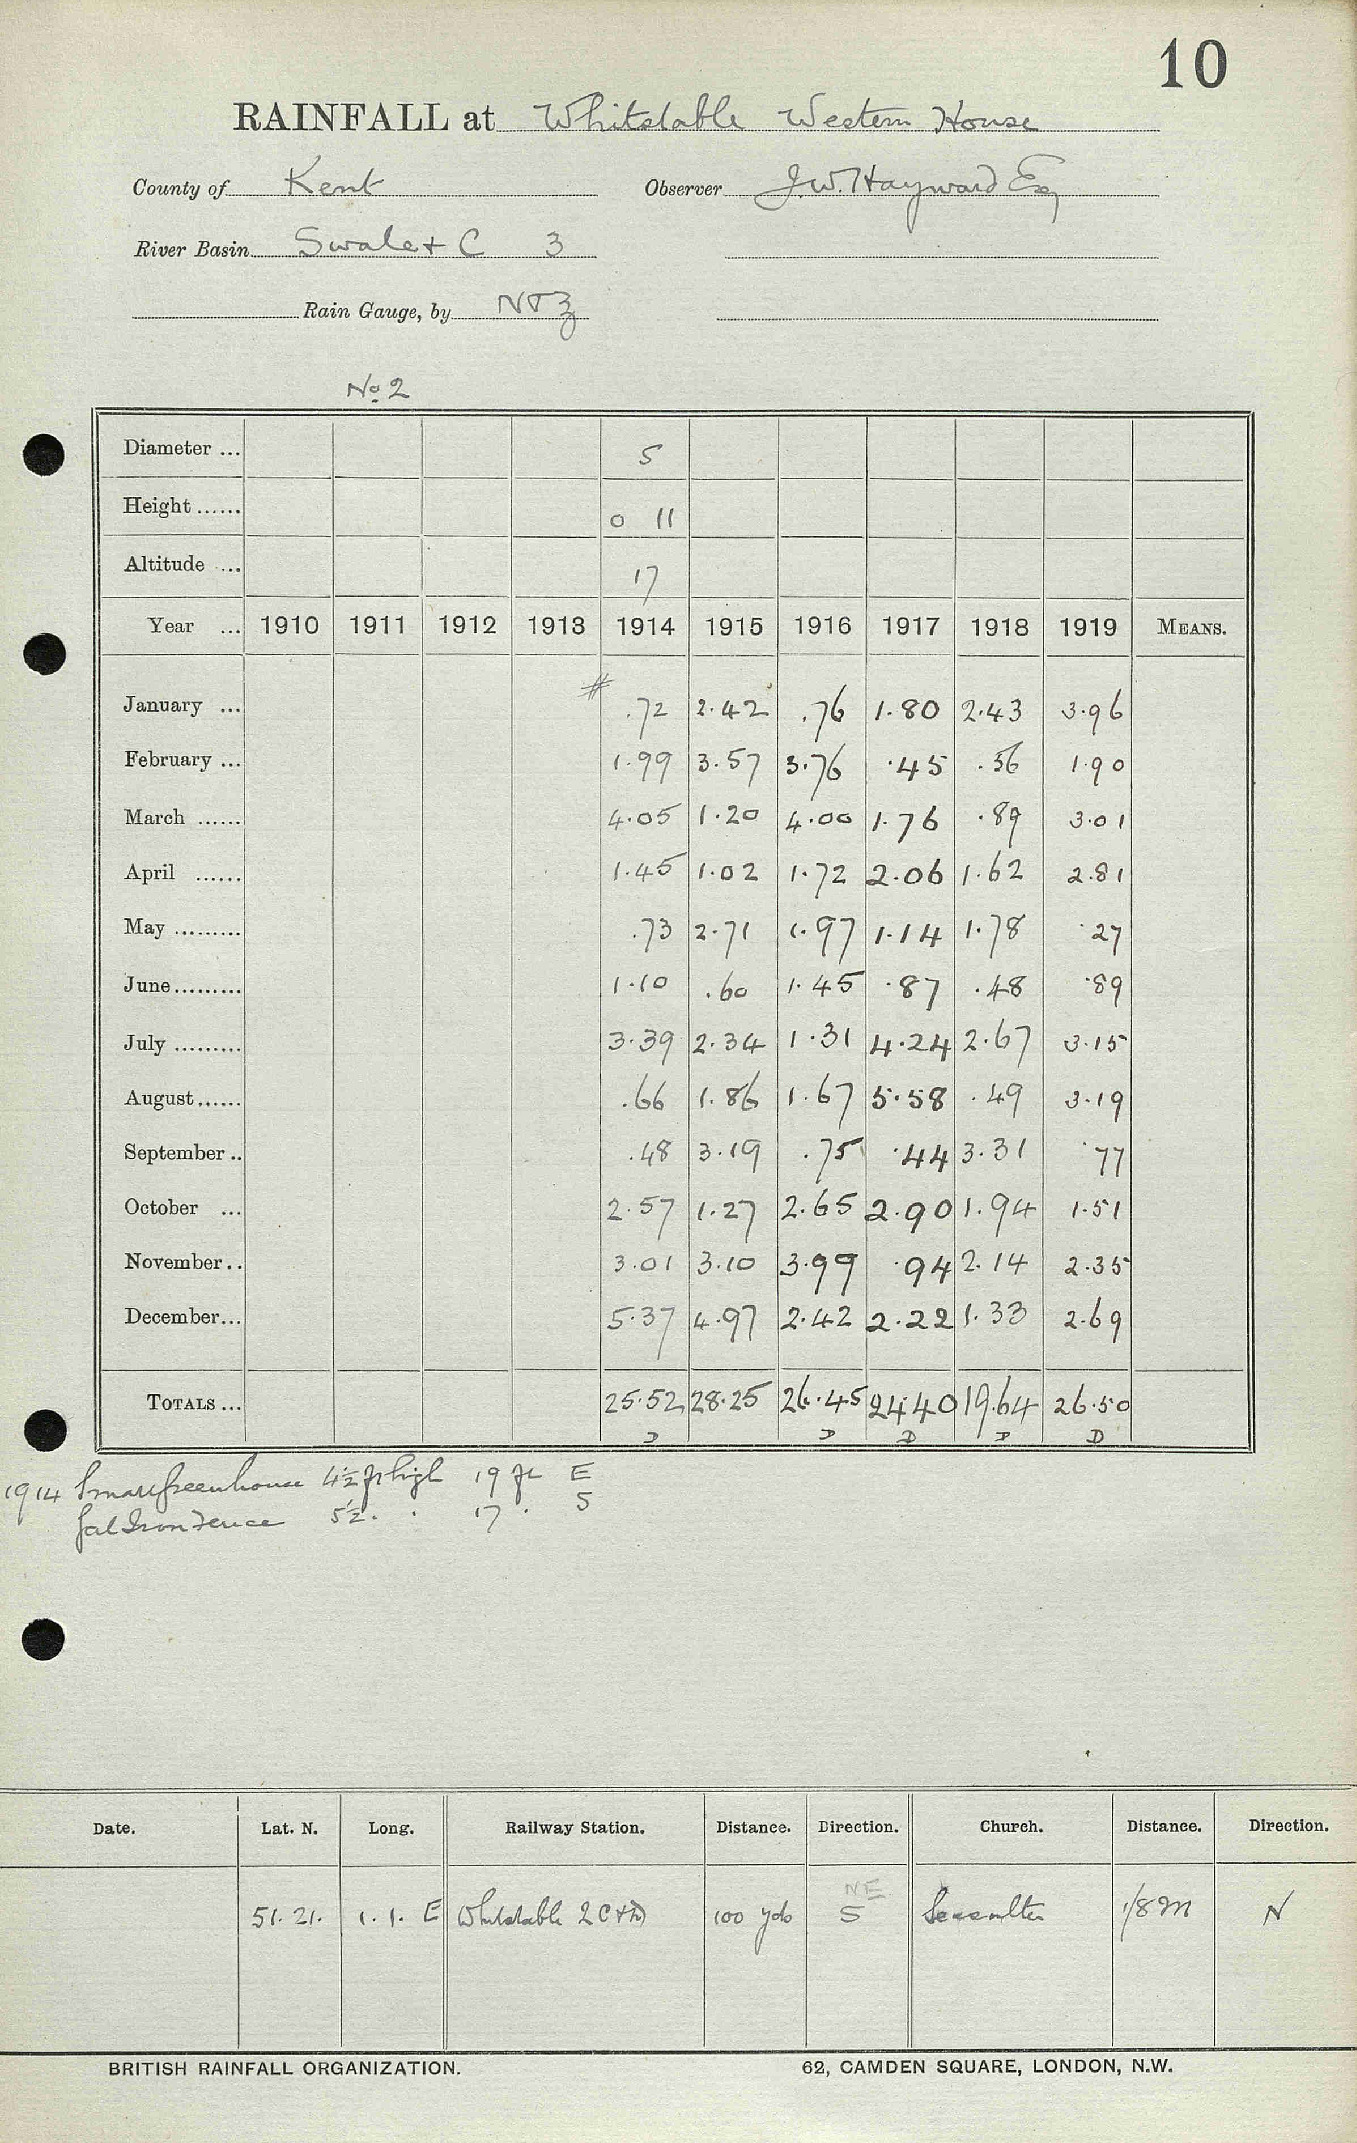 10
RAINFALL at Whitstable Western House
County of Kent Observer J.W. Hayward Esq
River Basin Swale + C 3
Rain Gauge, by N & Z
No. 2
Diameter ... 5
Height ...... 0 11
Altitude ... 17
Year ... 1910 1911 1912 1913 1914 1915 1916 1917 1918 1919 MEANS.
January ... # .72 2.42 .76 1.80 2.43 3.96
February ... 1.99 3.57 3.76 .45 .56 1.90
March ...... 4.05 1.20 4.00 1.76 .89 3.01
April ...... 1.45 1.02 1.72 2.06 1.62 2.81
May ......... .73 2.71 1.97 1.14 1.78 .27
June ......... 1.10 .60 1.45 .87 .48 .89
July ......... 3.39 2.34 1.31 4.24 2.67 3.15
August ...... .66 1.86 1.67 5.58 .49 3.19
September .. .48 3.19 .75 .44 3.31 .77
October ... 2.57 1.27 2.65 2.90 1.94 1.51
November .. 3.01 3.10 3.99 .94 2.14 2.35
December ... 5.37 4.97 2.42 2.22 1.33 2.69
TOTALS ... 25.52 28.25 26.45 24.40 19.64 26.50
D D D D D
1914 Small Greenhouse 4½ ft high 19 ft E
Gal Iron Fence 5½ . . 17 . S
Date. Lat. N. Long. Railway Station. Distance. Direction. Church. Distance. Direction.
NE
51. 21. 1. 1. E Whitstable LC&D 100 yds S Seasalter 1/8 M N
BRITISH RAINFALL ORGANIZATION. 62, CAMDEN SQUARE, LONDON, N.W.